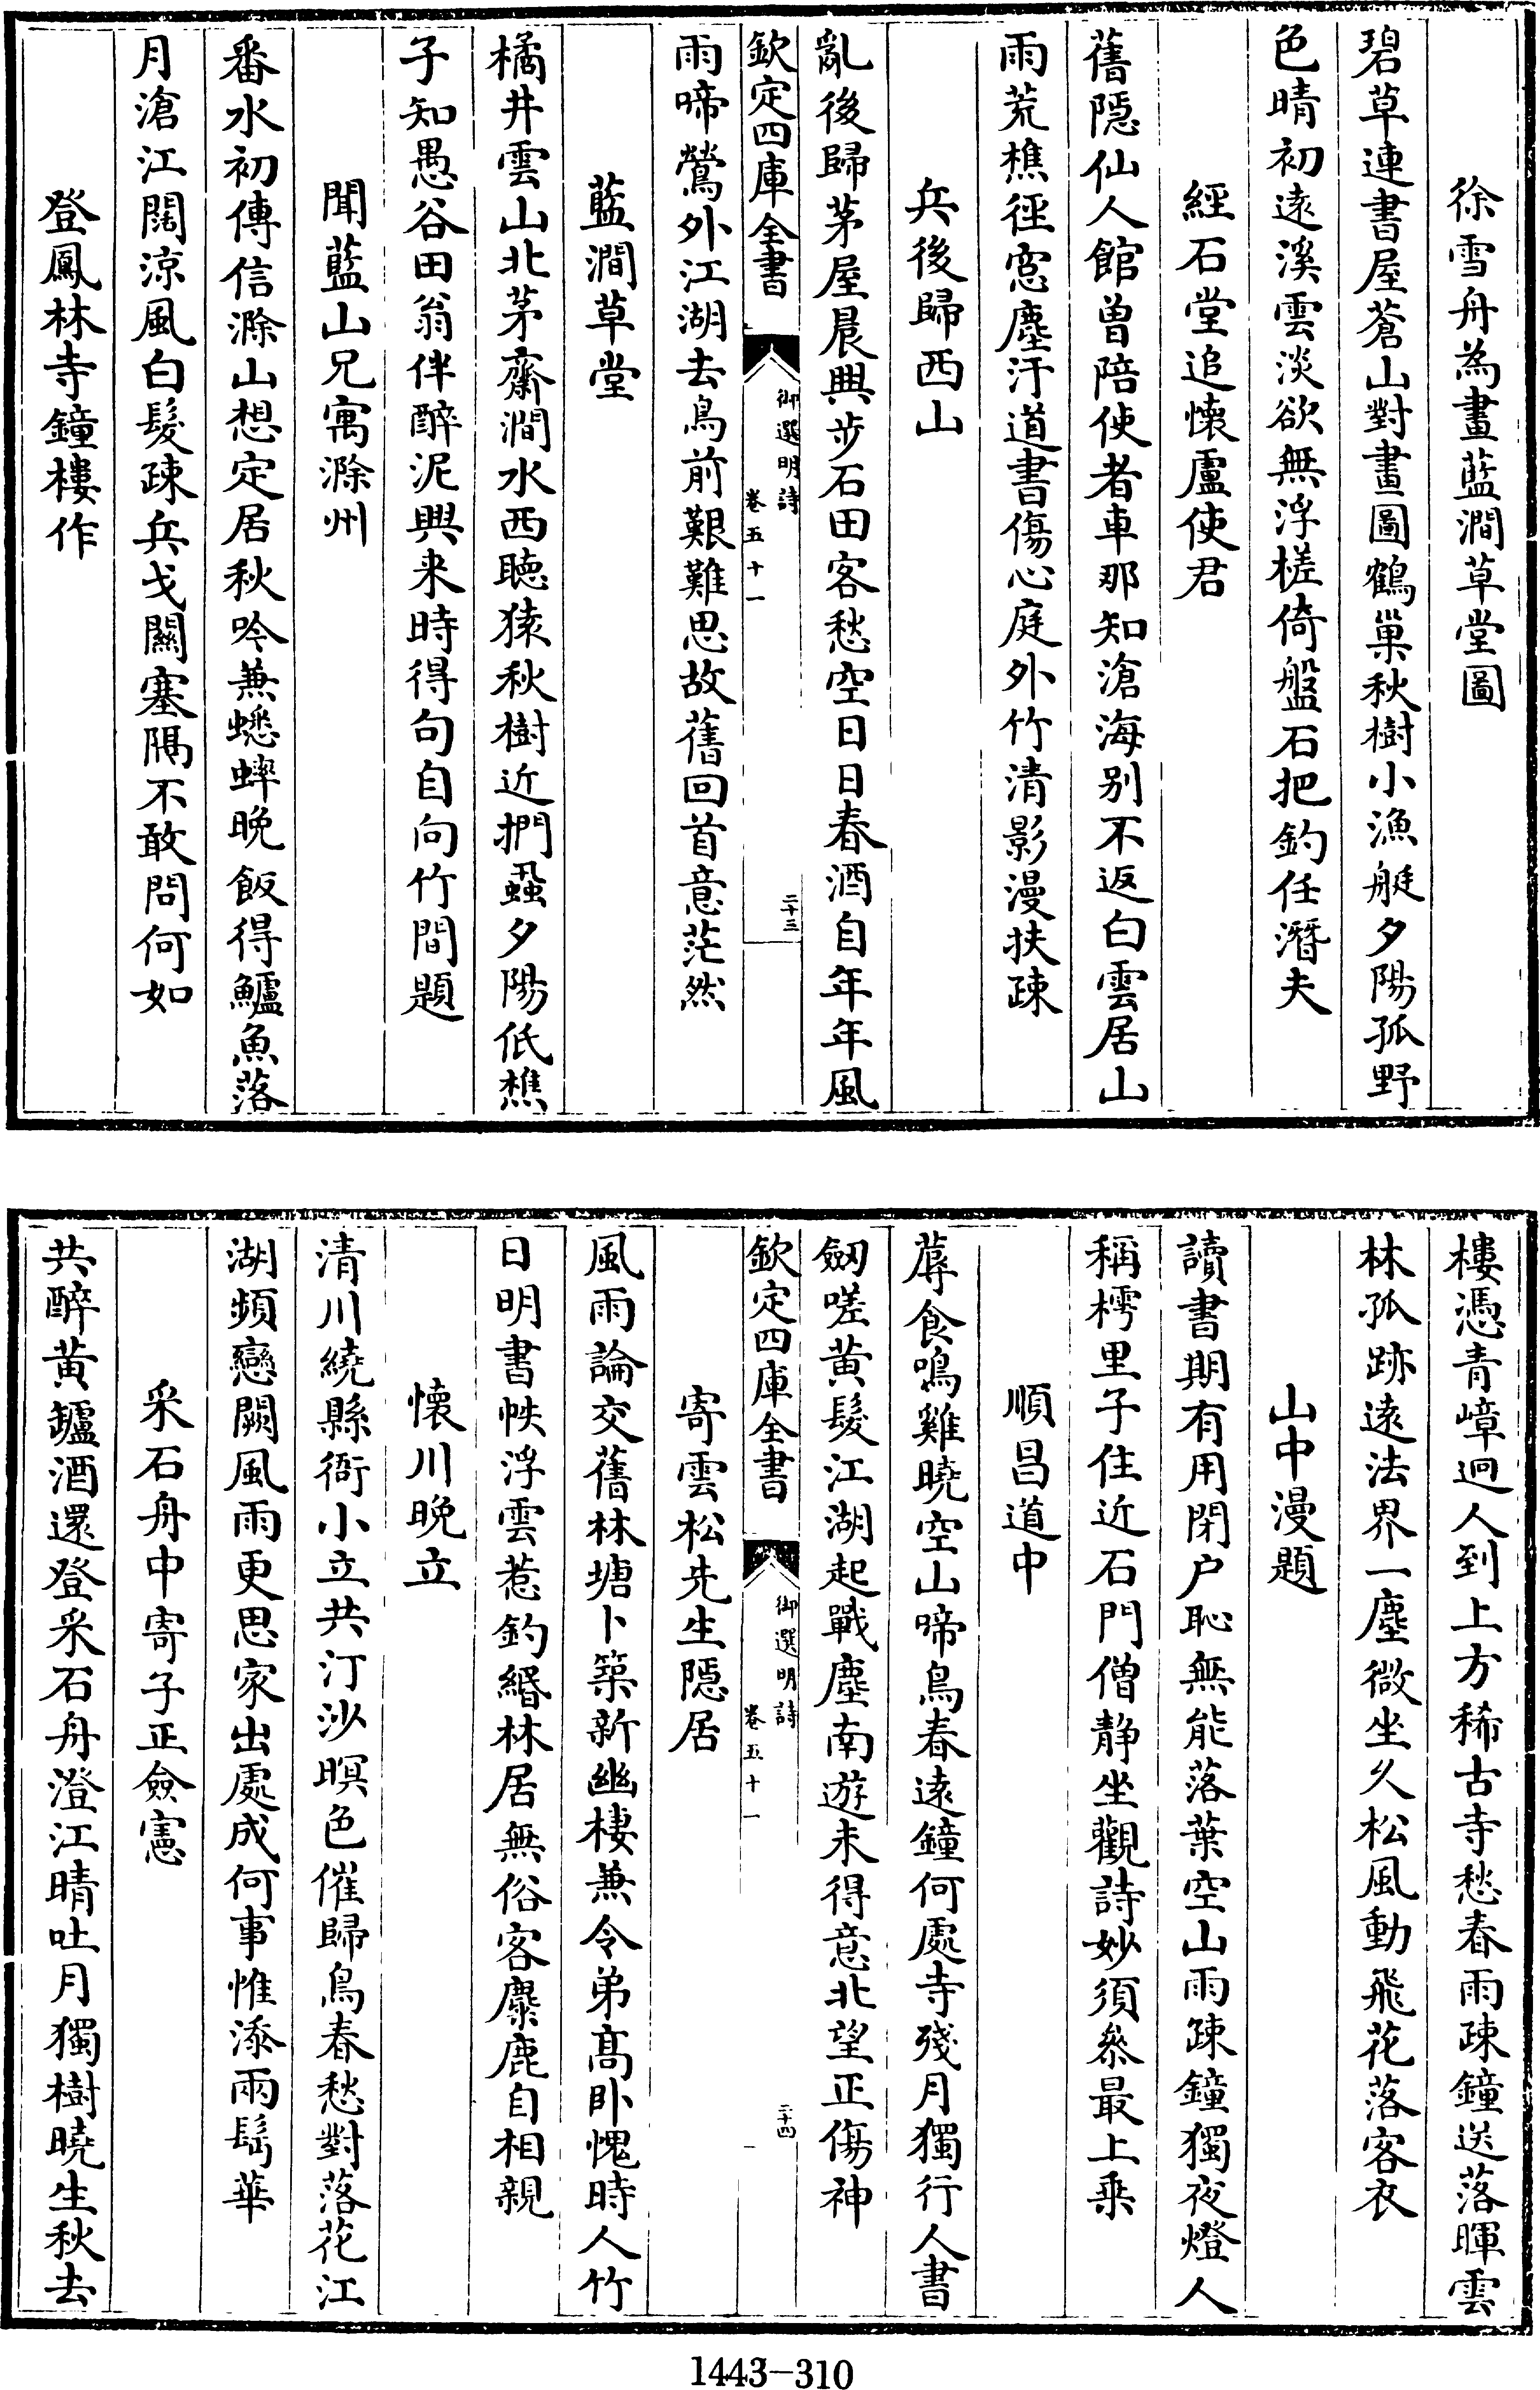 徐雪舟為畫藍澗草堂圖
碧草連書屋蒼山對畫圖鶴巢秋樹小漁艇夕陽孤野
色晴初遠溪雲淡欲無浮槎倚盤石把釣任潛夫
經石堂追懷盧使君
舊隱仙人館曽陪使者車那知滄海别不返白雲居山
雨荒樵徑窓塵汙道書傷心庭外竹清影漫扶疎
兵後歸西山
亂後歸茅屋晨興步石田客愁空日日春酒自年年風
欽定四庫全書
御選明詩
卷五十一
二十三
雨啼鶯外江湖去鳥前艱難思故舊回首意茫然
藍澗草堂
橘井雲山北茅齋澗水西聴猿秋樹近捫蝨夕陽低樵
子知愚谷田翁伴醉泥興来時得句自向竹間題
聞藍山兄寓滁州
番水初傳信滁山想定居秋吟兼蟋蟀晚飯得鱸魚落
月滄江闊涼風白髪疎兵戈關塞隔不敢問何如
登鳳林寺鐘樓作
樓憑青嶂迥人到上方稀古寺愁春雨疎鐘送落暉雲
林孤跡遠法界一塵微坐久松風動飛花落客衣
山中漫題
讀書期有用閉户恥無能落葉空山雨疎鐘獨夜燈人
稱樗里子住近石門僧静坐觀詩妙須叅最上乘
順昌道中
蓐食鳴雞曉空山啼鳥春遠鐘何處寺殘月獨行人書
劒嗟黄髪江湖起戰塵南遊未得意北望正傷神
欽定四庫全書
御選明詩
卷五十一
二十四
寄雲松先生隱居
風雨論交舊林塘卜築新幽棲兼令弟髙卧愧時人竹
日明書帙浮雲惹釣緡林居無俗客麋鹿自相親
懷川晚立
清川繞縣衙小立共汀沙暝色催歸鳥春愁對落花江
湖頻戀闕風雨更思家出處成何事惟添兩鬂華
采石舟中寄子正僉憲
共醉黄罏酒還登采石舟澄江晴吐月獨樹曉生秋去
1443-310